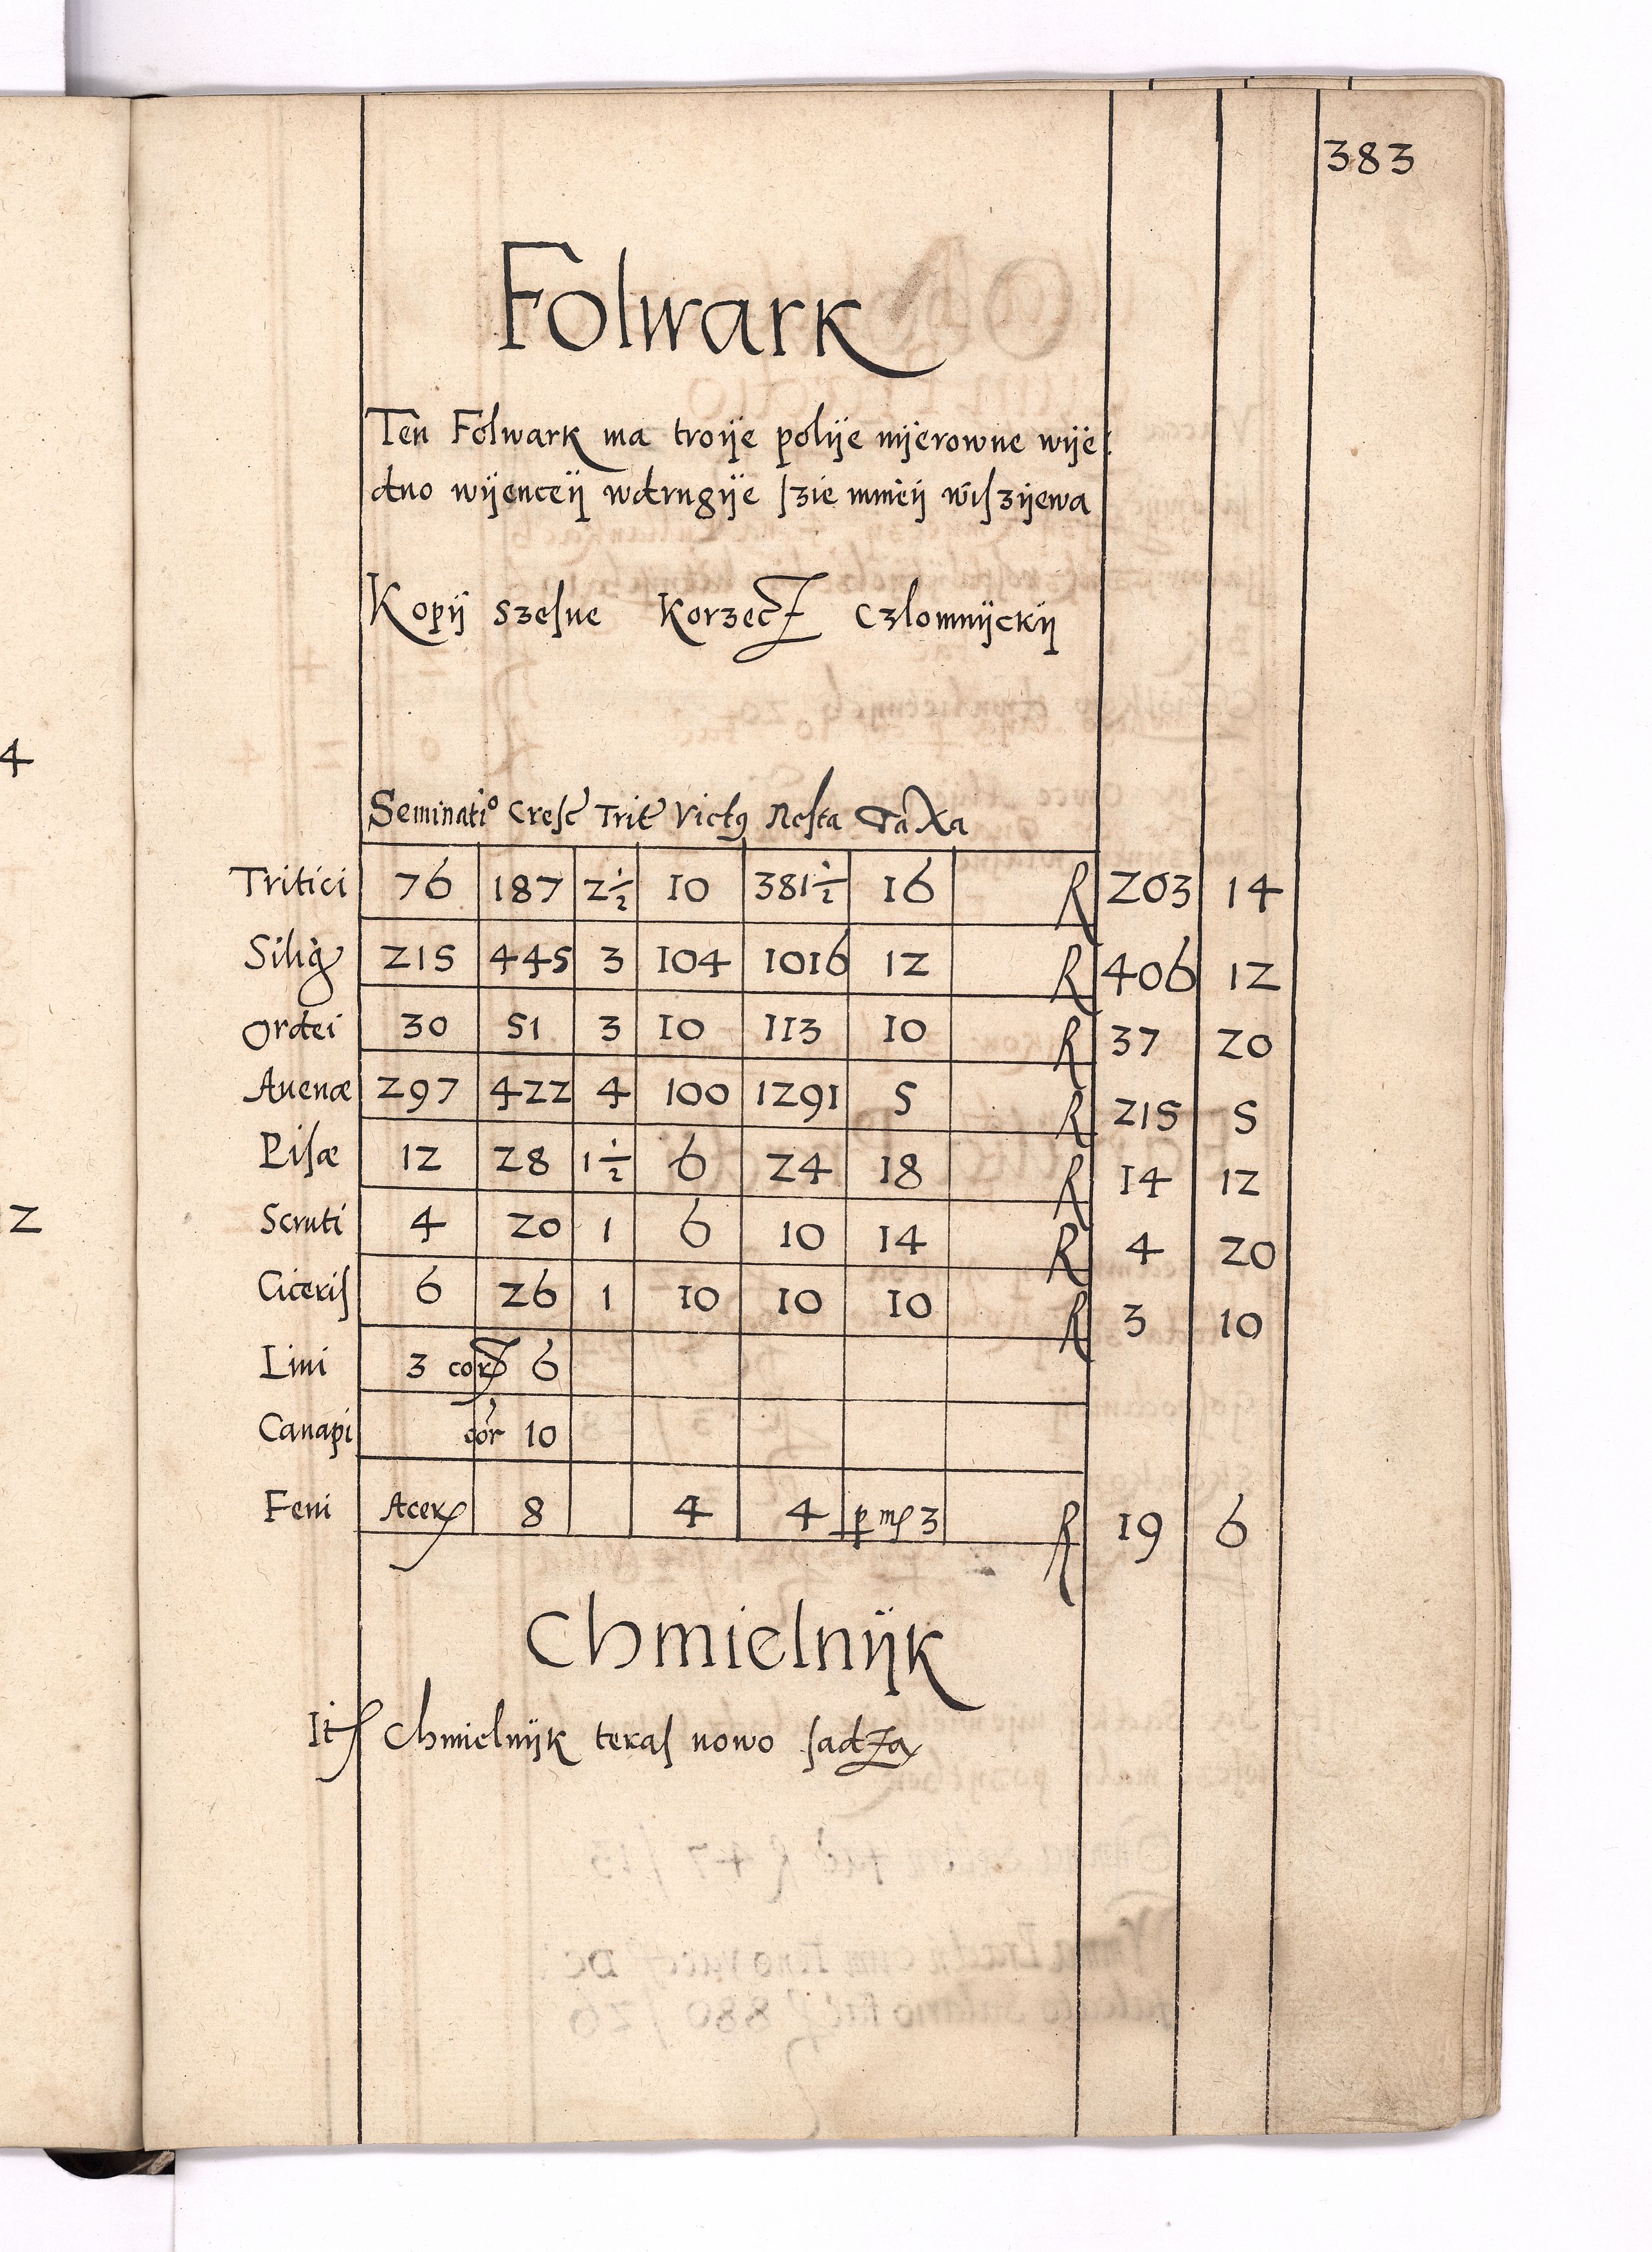 383
Folwark
Ten Folwark ma troije polije nijerowne wije:
dno wijenceij wdrugije szie mnieij wiszijewa
Kopij szesne Korzecz Czlomnijckij
Seminatio Cresc Trit Victq Resta Taxa
Tritici 76 187 2 1/2 10 381 1/2 16 R 203 14
Silig 215 445 3 104 1016 12 R 406 12
Ordei 30 51 3 10 113 10 R 37 20
Auenæ 297 422 4 100 1291 5 R 215 5
Pisæ 12 28 1 1/2 6 24 18 R 14 12
Scruti 4 20 1 6 10 14 R 4 20
Ciceris 6 26 1 10 10 10 R 3 10
Lini 3 cor 6
Canapi cor 10
Feni Acer 8 4 4 p 3 R 19 6
Chmielnijk
It Chmielnijk teras nowo sadza
4
2